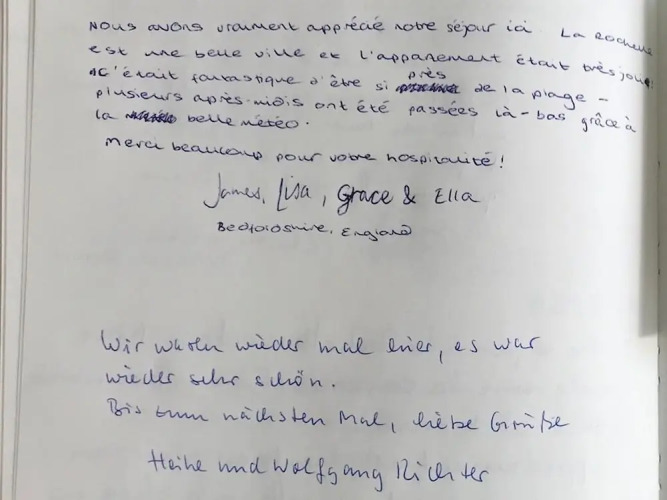 Nous avons vraiment apprécié notre séjour ici. La Rochelle
est une belle ville et l'appartement était très joli!
C'était fantastique d'être si près de la plage -
plusieurs après-midis ont été passées là-bas grâce à
la belle météo.
Merci beaucoup pour votre hospitalité!
James, Lisa, Grace & Ella
Bedfordshire, England
Wir waren wieder mal hier, es war
wieder sehr schön.
Bis zum nächsten Mal, liebe Grüße
Heike und Wolfgang Richter